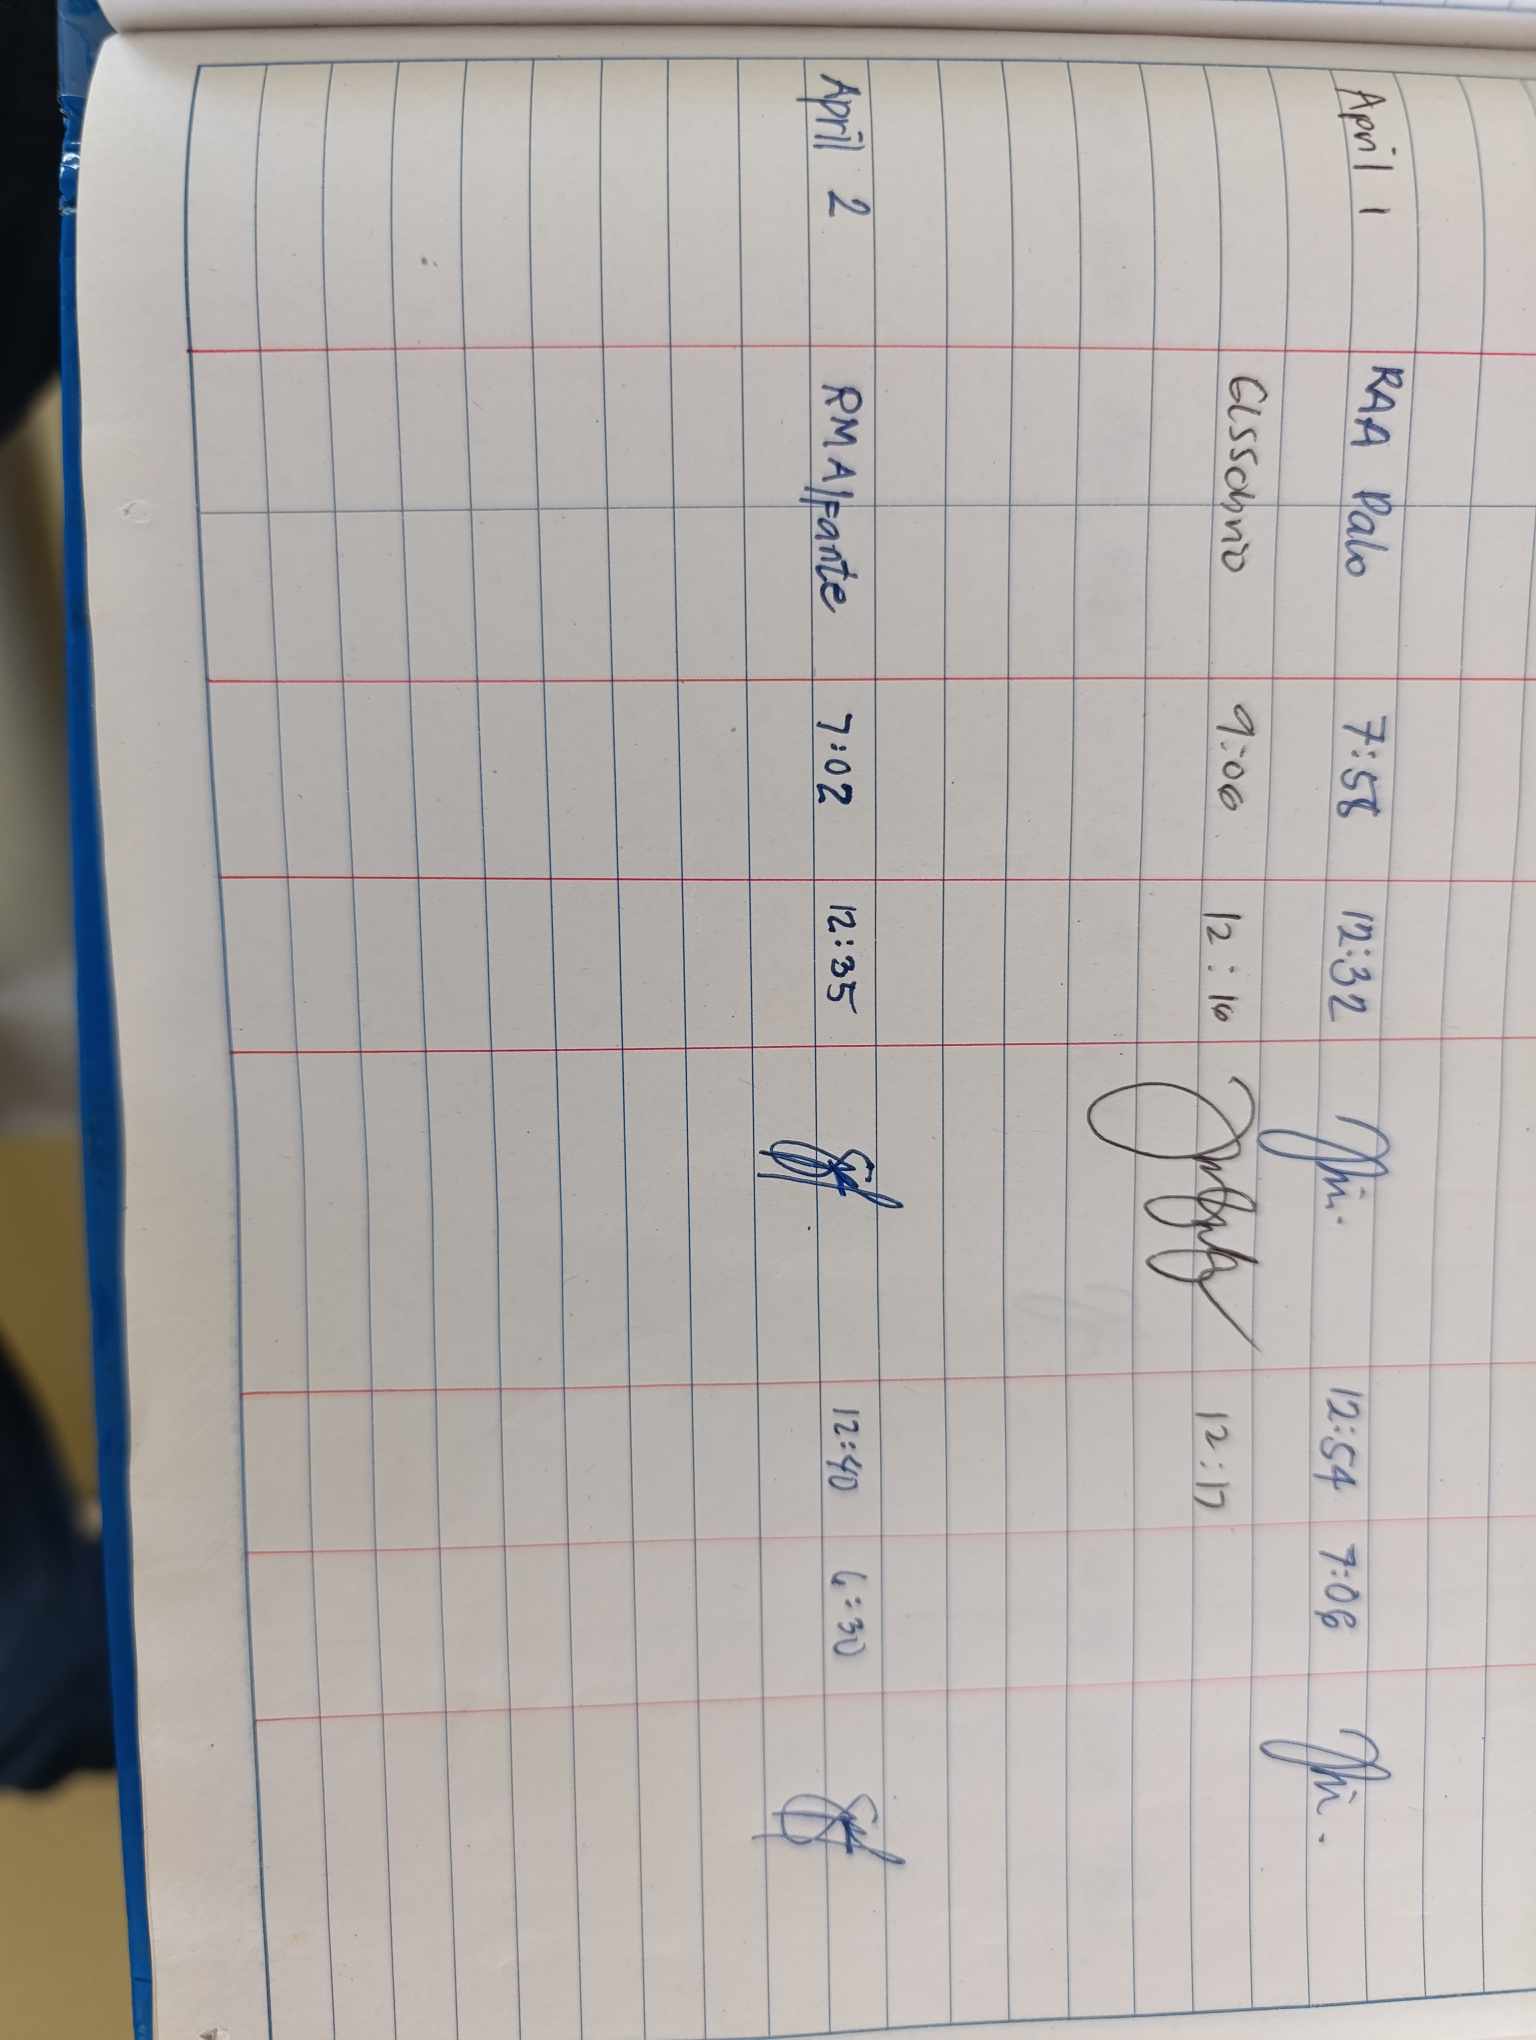 April 1 RAA Palo 7:58 12:32 12:54 7:06
9:06 12:16 12:17
April 2 RMAlfante 7:02 12:35 12:40 6:30